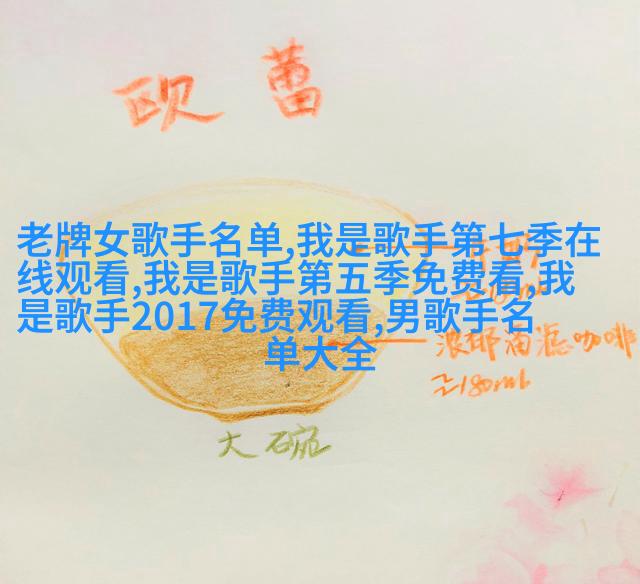 欧蕾
老牌女歌手名单,我是歌手第七季在
线观看,我是歌手第五季免费看,我
是歌手2017免费观看,男歌手名
单大全
咖啡
≈180ml
大碗